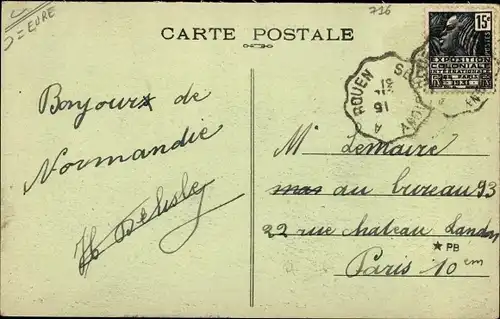 D=EURE
716
CARTE POSTALE
15c
POSTES
EXPOSITION
COLONIALE
INTERNATIONALE
PARIS
1931
ROUEN
15
31
Bonjours de
Normandie
Delisle
Mr Lemaire
au bureau 93
22 rue chateau Landon
★ PB
Paris 10 em